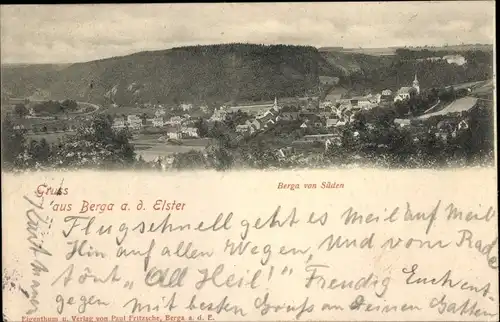 Gruss
aus Berga a. d. Elster
Berga von Süden
Flugschnell geht es Meil auf Meil
Hin auf allen Wegen, Und vom Rade
tönt "All Heil!" Freudig Euch ent-
gegen. Mit besten Gruß an Deinen Gatten
Kurt
Eigenthum u. Verlag von Paul Fritzsche, Berga a. d. E.